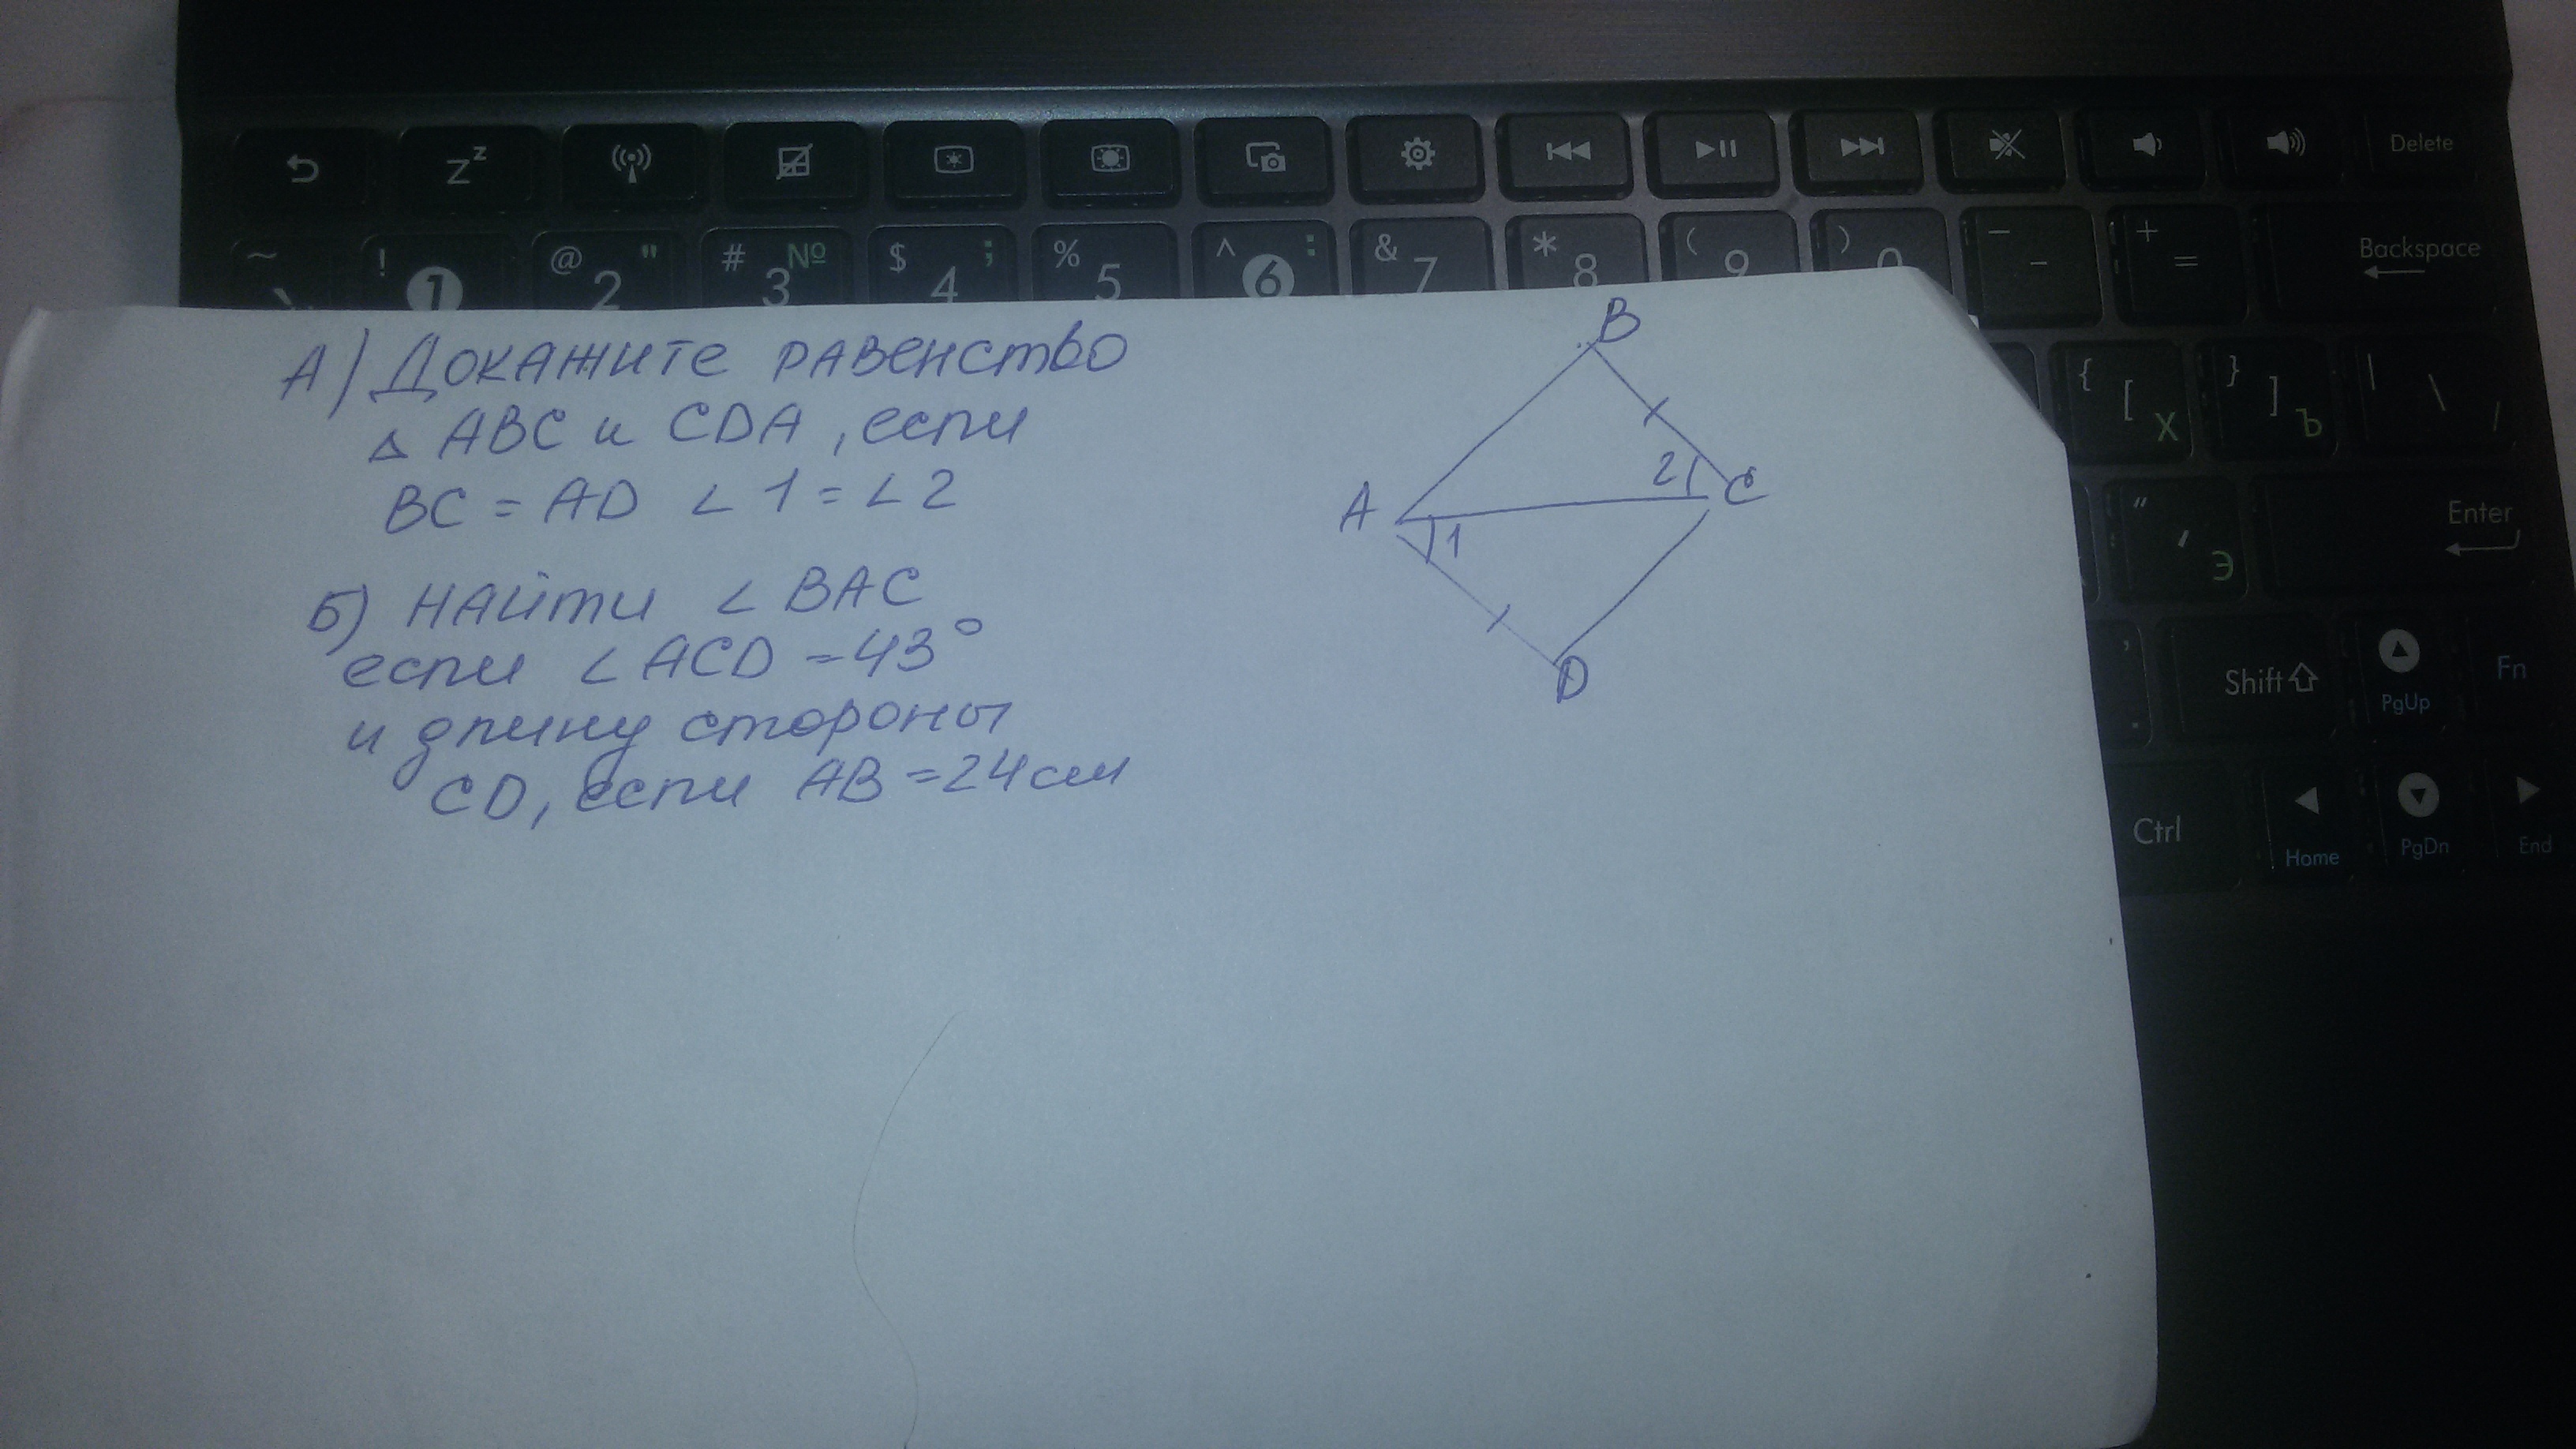 Delete
~ ! 1 @ " 2 # № 3 $ ; 4 % 5 ^ : 6 & 7 * 8 ( 9 ) 0 _ - + = Backspace
{ [ Х } ] Ъ | \ /
" ' Э Enter
Shift PgUp Fn
Ctrl Home PgDn End
А) Докажите равенство
△ ABC и CDA, если
BC = AD ∠ 1 = ∠ 2
Б) Найти ∠ BAC
если ∠ ACD = 43°
и длину стороны
CD, если AB = 24 см
B
2
C
A
1
D